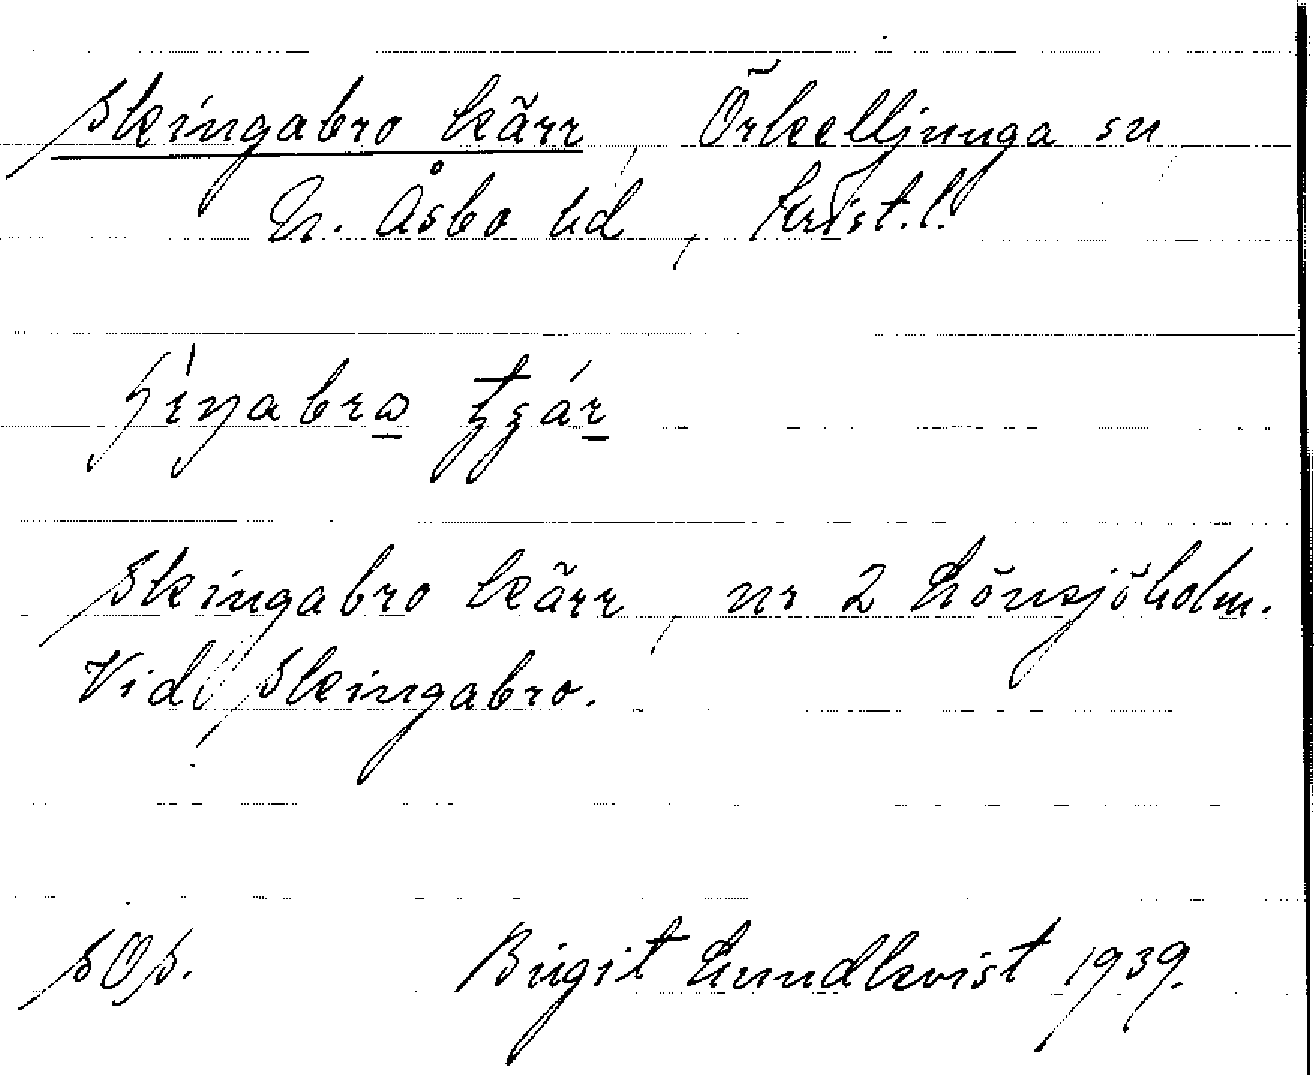 Skingabro kärr, Örkelljunga sn,
N. Åsbo hd, Krist.l.
Skingabro kärr, nr 2 Lönsjöholm.
Vid Skingabro.
SOS. Birgit Lundkvist 1939.